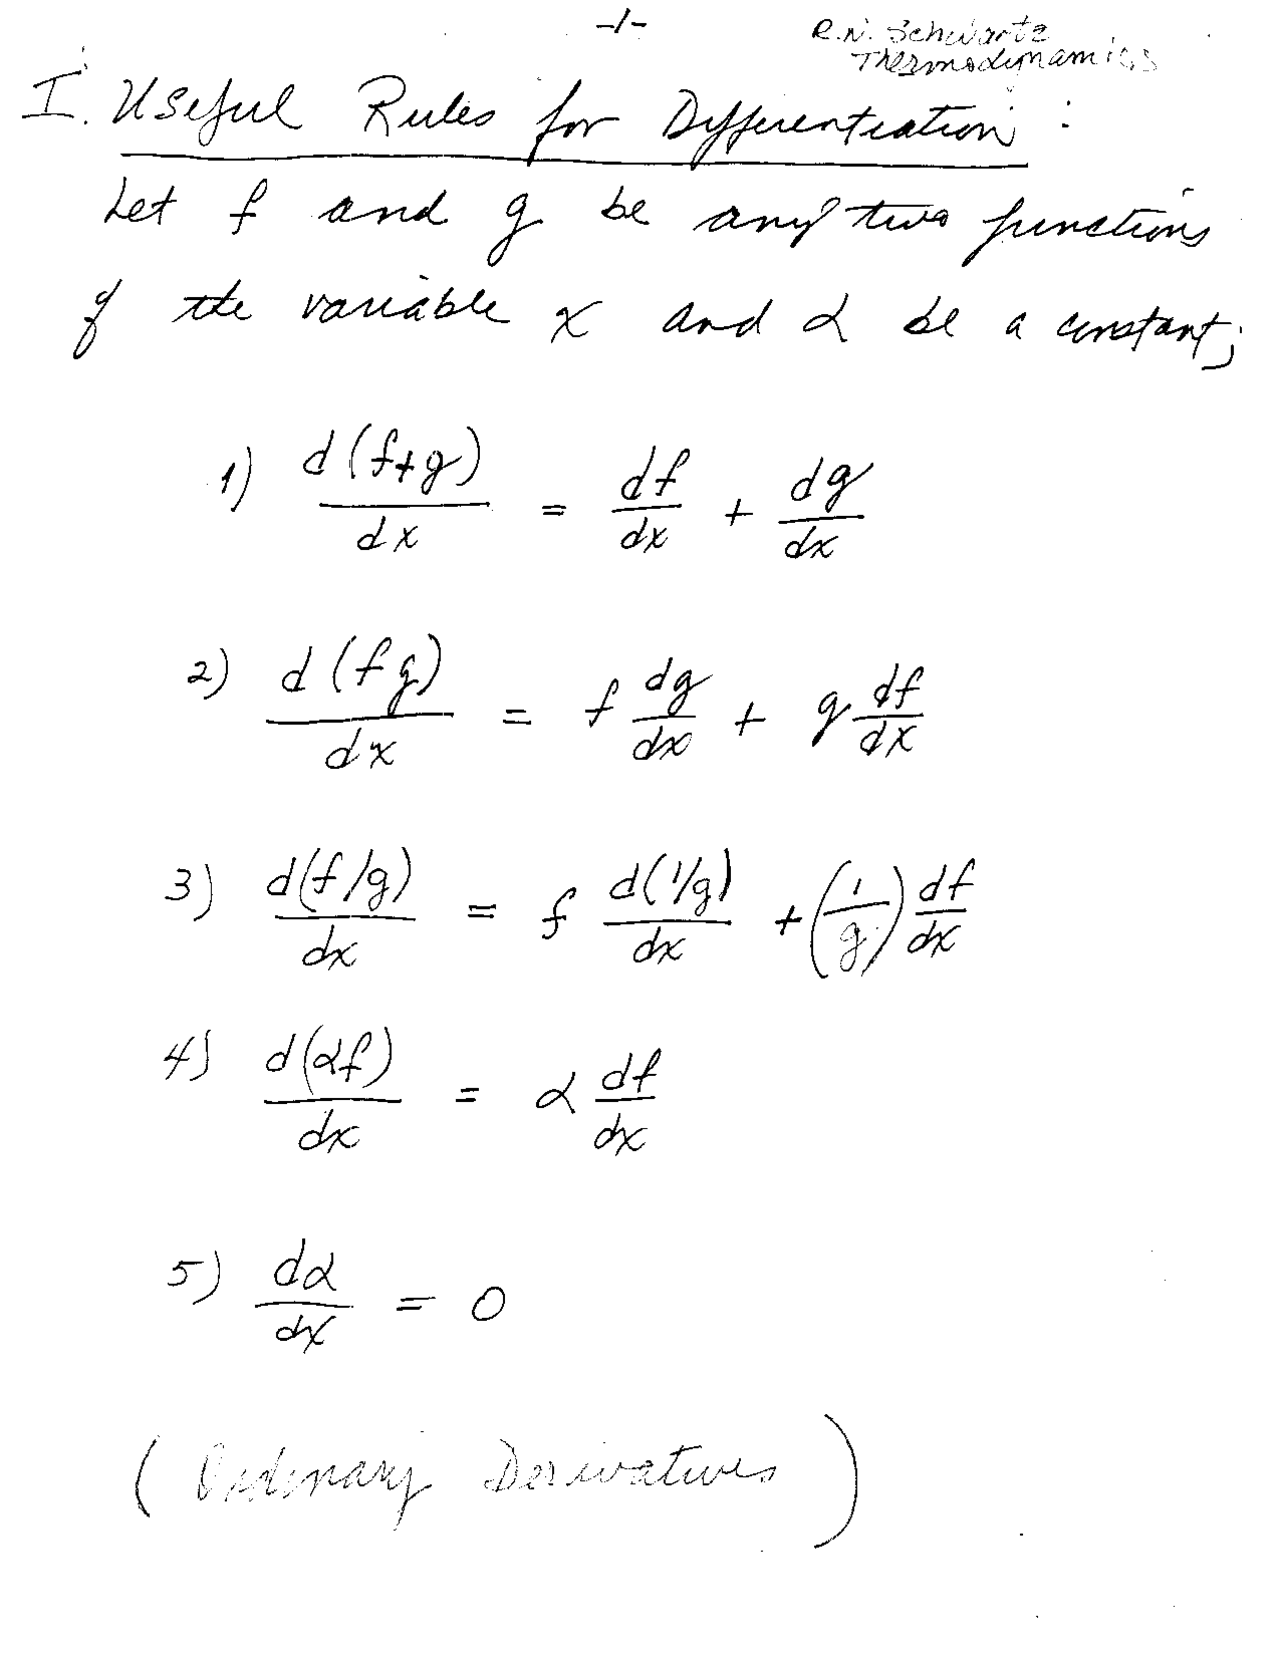 -1-
R.N. Schwartz
Thermodynamics
I. Useful Rules for Differentiation:
Let f and g be any two functions
of the variable x and α be a constant;
1) d(f+g)/dx = df/dx + dg/dx
2) d(fg)/dx = f dg/dx + g df/dx
3) d(f/g)/dx = f d(1/g)/dx + (1/g) df/dx
4) d(αf)/dx = α df/dx
5) dα/dx = 0
(Ordinary Derivatives)